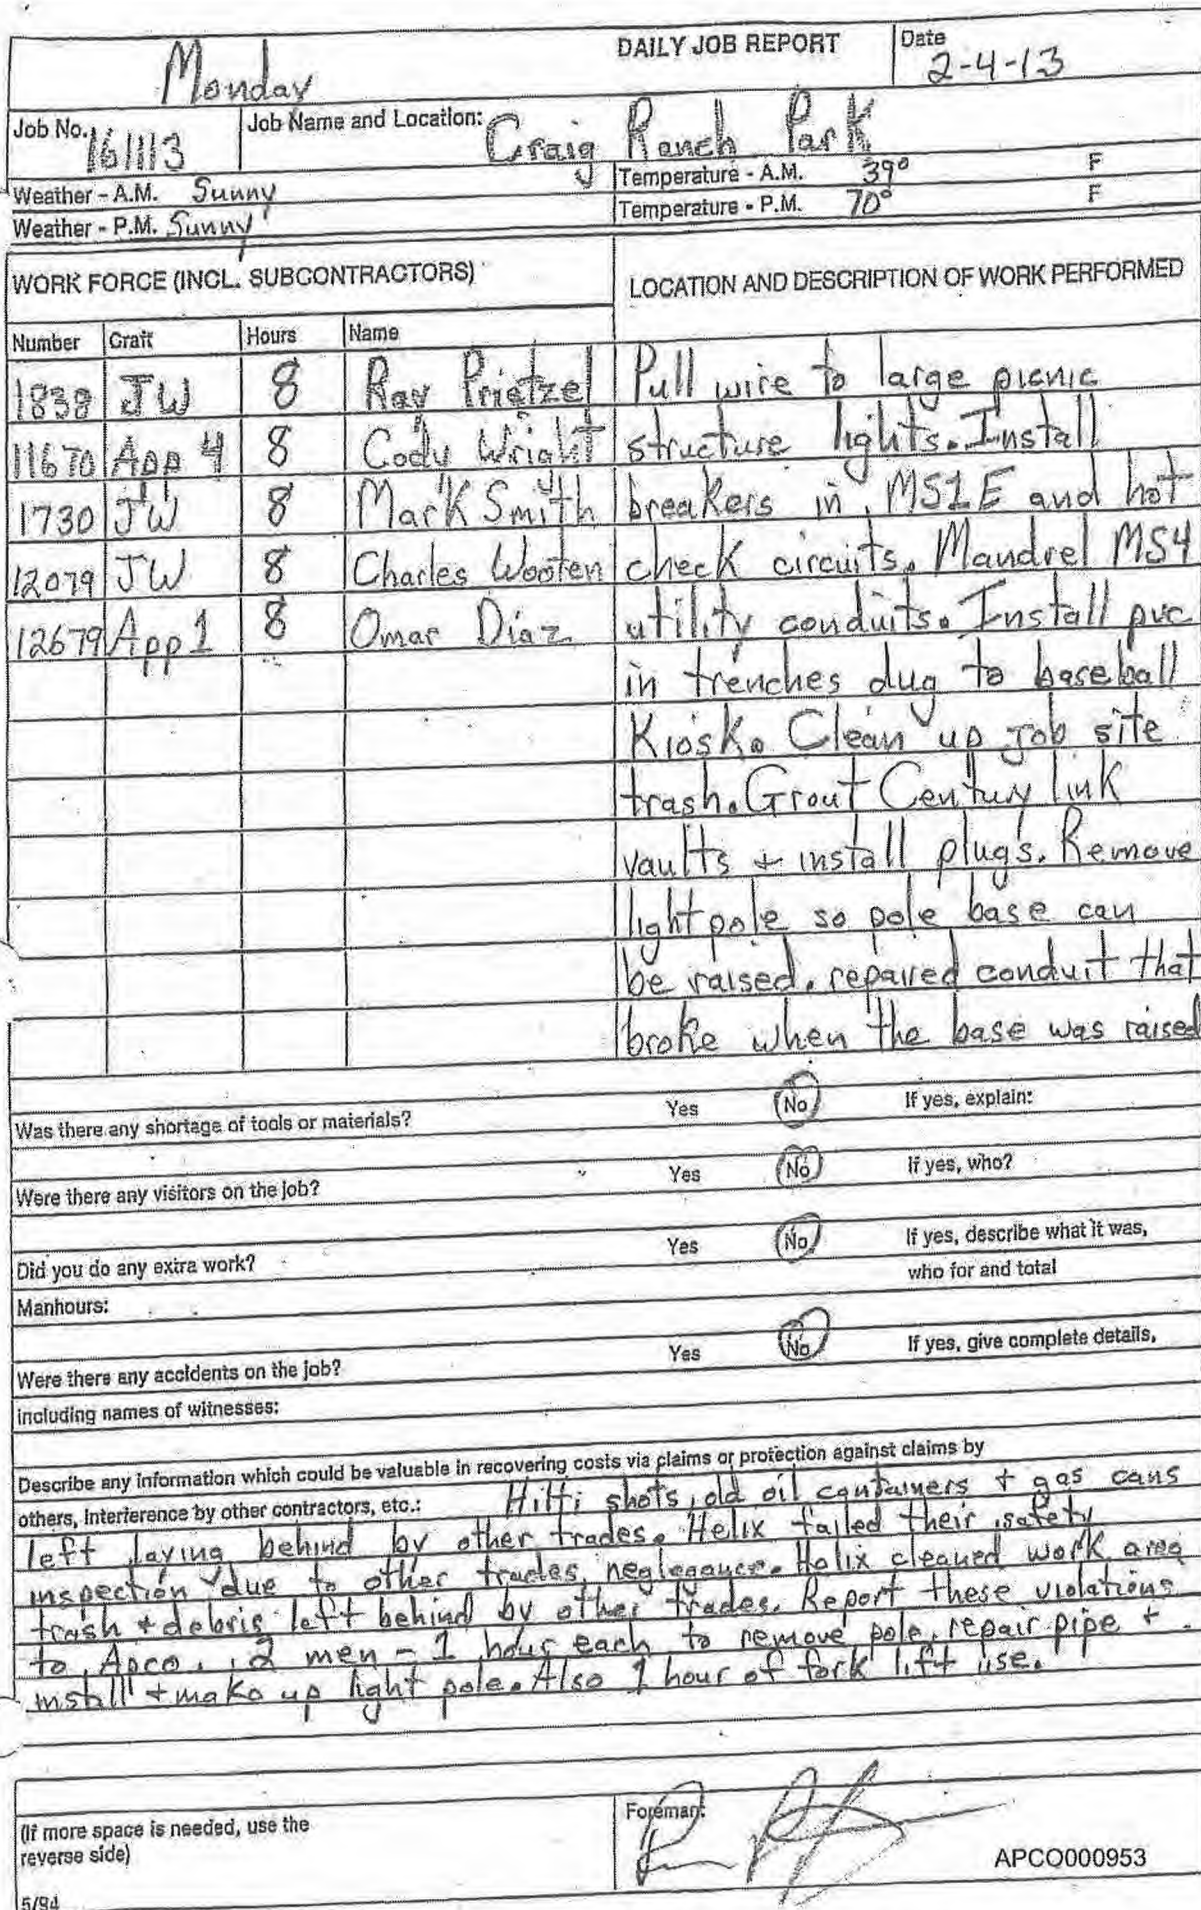 DAILY JOB REPORT
Date
Monday
2-4-13
Job No. 161113
Job Name and Location: Craig Ranch Park
Weather - A.M. Sunny
Temperature - A.M. 39° F
Weather - P.M. Sunny
Temperature - P.M. 70° F
WORK FORCE (INCL. SUBCONTRACTORS)
LOCATION AND DESCRIPTION OF WORK PERFORMED
Number Craft Hours Name
1838 JW 8 Ray Prietzel Pull wire to large picnic
11670 App 4 8 Cody Wright structure lights. Install
1730 JW 8 Mark Smith breakers in MS1E and hot
12079 JW 8 Charles Wooten check circuits. Mandrel MS4
12679 App 1 8 Omar Diaz utility conduits. Install pvc
in trenches dug to baseball
Kiosk. Clean up job site
trash. Grout Century link
vaults + install plugs. Remove
light pole so pole base can
be raised. repaired conduit that
broke when the base was raised
Was there any shortage of tools or materials? Yes No If yes, explain:
Were there any visitors on the job? Yes No If yes, who?
Did you do any extra work? Yes No If yes, describe what it was,
who for and total
Manhours:
Were there any accidents on the job? Yes No If yes, give complete details,
including names of witnesses:
Describe any information which could be valuable in recovering costs via claims or protection against claims by
others, interference by other contractors, etc.: Hilti shots, old oil containers + gas cans
left laying behind by other trades. Helix failed their safety
inspection due to other trades neglegance. Helix cleaned work area
trash + debris left behind by other trades. Report these violations
to Apco. 2 men - 1 hour each to remove pole, repair pipe +
install + make up light pole. Also 1 hour of fork lift use.
(If more space is needed, use the
reverse side)
Foreman:
APCO000953
5/94